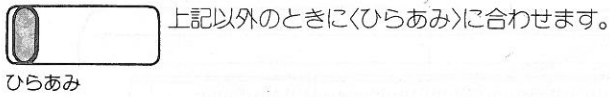 上記以外のときに〈ひらあみ〉に合わせます。
ひらあみ